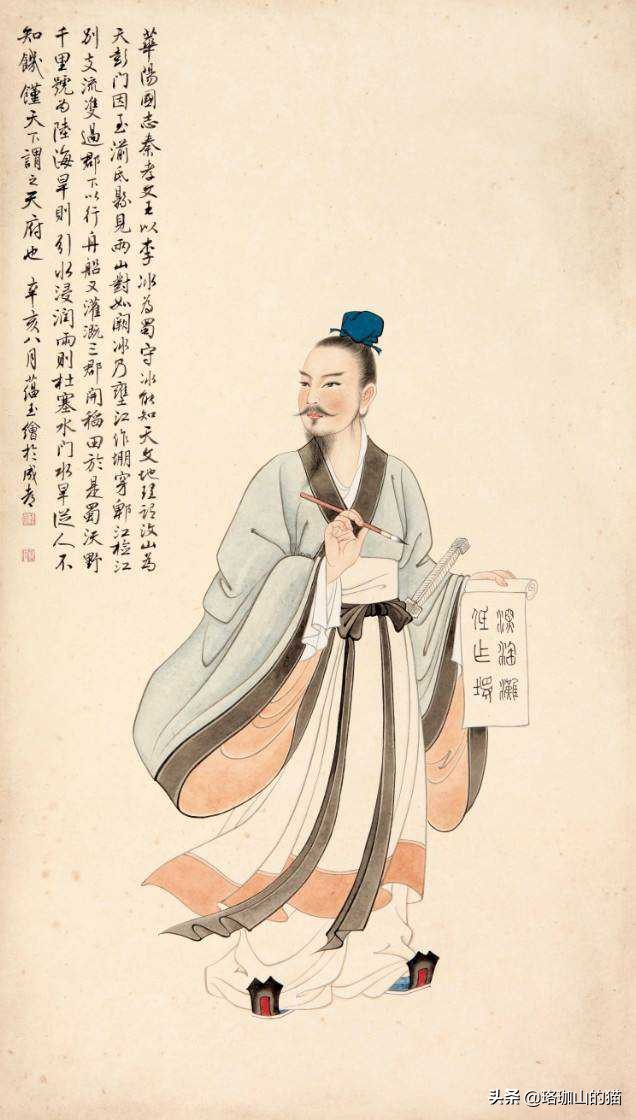 華陽國志秦孝文王以李冰為蜀守冰能知天文地理謂汶山為
天彭门因至湔氐縣見兩山對如闕冰乃壅江作堋穿郫江檢江
别支流雙過郡下以行舟船又灌溉三郡開稻田於是蜀沃野
千里號為陸海旱則引水浸润雨則杜塞水门水旱從人不
知饑饉天下謂之天府也 辛亥八月蕴玉繪於成都
深淘灘
低作堰
头条 @珞珈山的猫